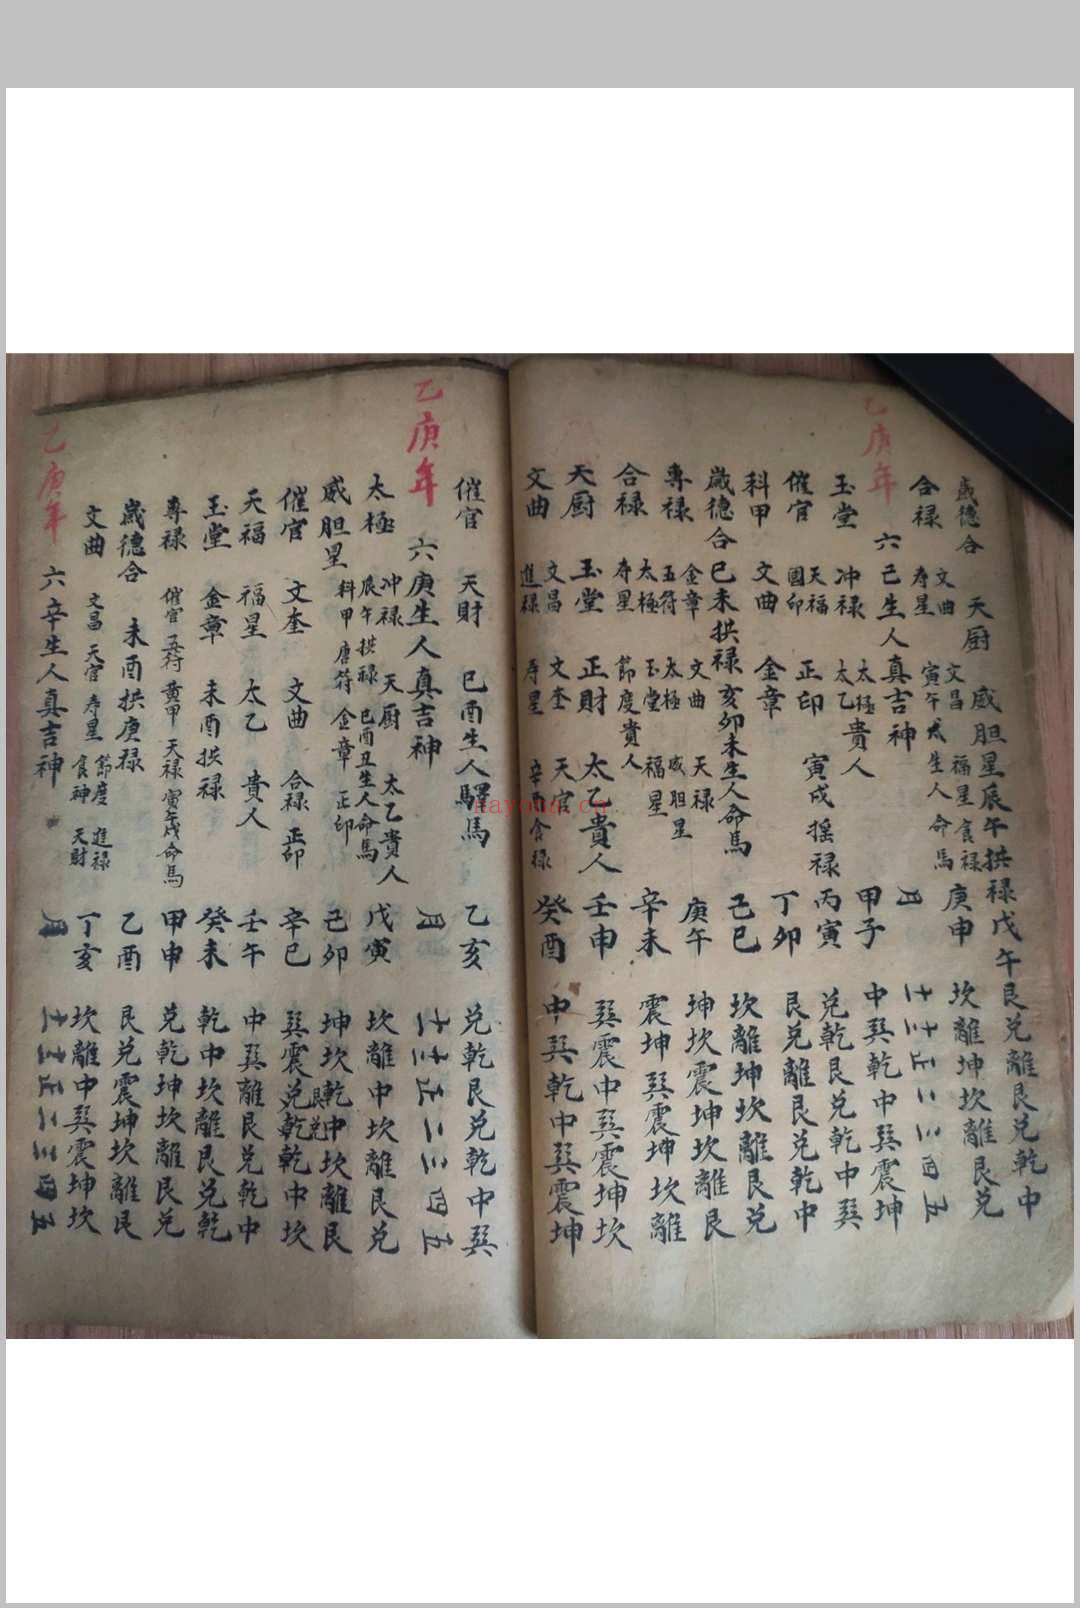 歲德合 天厨 威胆星 辰午拱禄 戊午 艮兑離艮兑乾中
合禄 文曲 寿星 文昌 寅午 生人命馬 福星 食禄 庚申 坎離坤坎離艮兑
乙庚年 六己生人真吉神 月 十一 十二 正 二 三 四 五
玉堂 冲禄 太極 太乙 貴人 甲子 中巽乾中巽震坤
催官 天福 國印 正印 寅戌摇禄 丙寅 兑乾艮兑乾中巽
科甲 文曲 金章 丁卯 艮兑離艮兑乾中
歲德合 巳未拱禄 亥卯未生人命馬 己巳 坎離坤坎離艮兑
專禄 金章 五符 文曲 太極 天禄 威胆星 庚午 坤坎震坤坎離艮
合禄 太極 寿星 玉堂 節度貴人 福星 辛未 震坤巽震坤坎離
天厨 玉堂 正財 太乙貴人 壬申 巽震中巽震坤坎
文曲 文昌 進禄 文奎 寿星 天官 辛酉食禄 癸酉 中巽乾中巽震坤
催官 天財 巳酉生人驛馬 乙亥 兑乾艮兑乾中巽
乙庚年 六庚生人真吉神 月 十一 十二 正 二 三 四 五
太極 冲禄 辰午拱禄 天厨 巳酉丑生人命馬 太乙貴人 戊寅 坎離中坎離艮兑
威胆星 科甲 唐符 金章 正印 己卯 坤坎乾中坎離艮
催官 文奎 文曲 合禄 正印 辛巳 巽震兑乾乾中坎
天福 福星 太乙 貴人 壬午 中巽離艮兑乾中
玉堂 金章 未酉拱禄 癸未 乾中坎離艮兑乾
專禄 催官 五符 黄甲 天禄 寅午戌命馬 甲申 兑乾坤坎離艮兑
歲德合 未酉拱庚禄 乙酉 艮兑震坤坎離艮
文曲 文昌 天官 寿星 節度 食神 進禄 天財 丁亥 坎離中巽震坤坎
乙庚年 六辛生人真吉神 月 十一 十二 正 二 三 四 五
nayona.cn